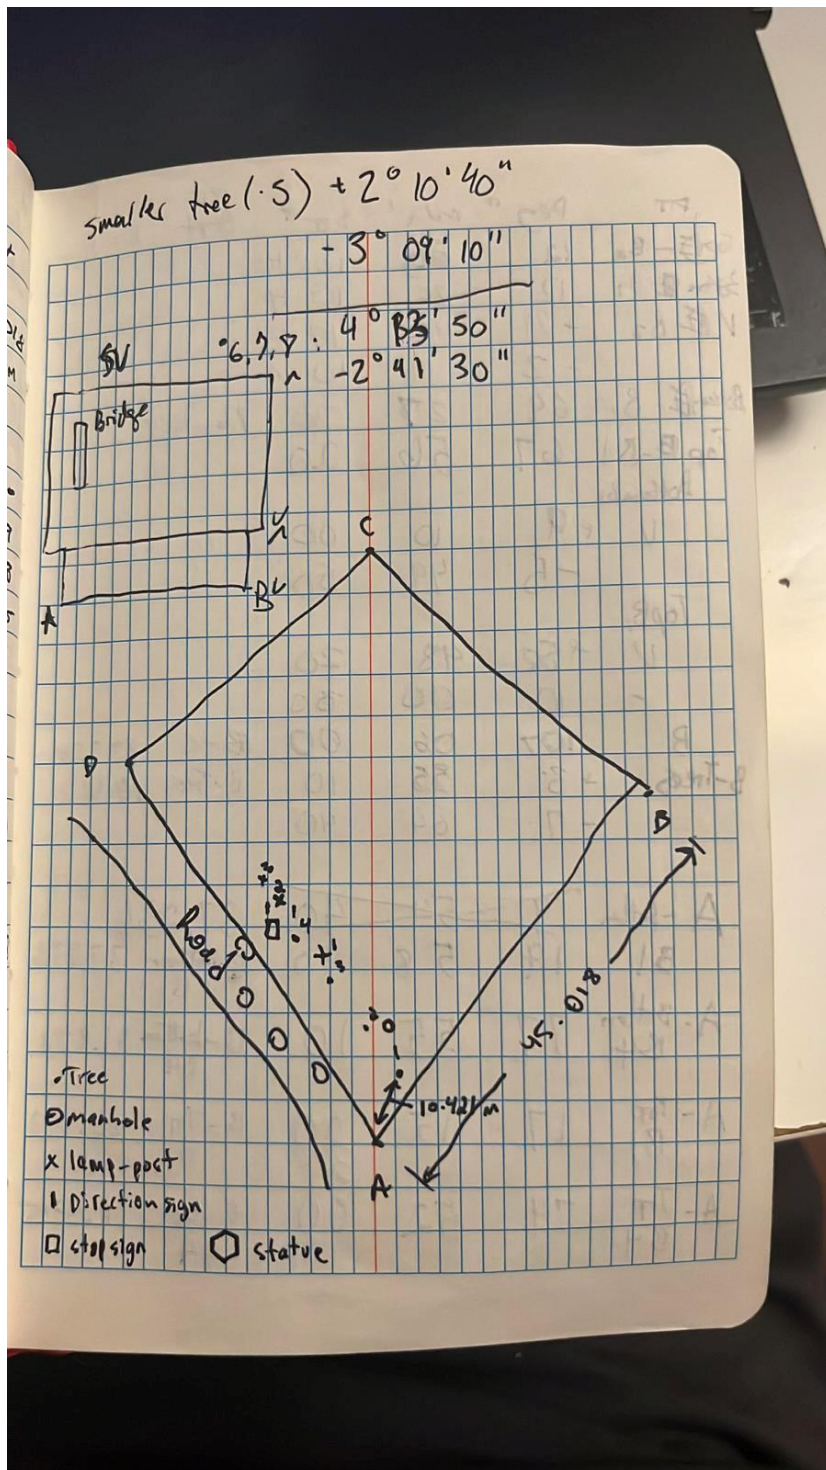 smaller tree (.5) + 2° 10' 40"
- 3° 09' 10"
°6,7,8 : 4° 50"
^ -2° 41' 30"
Bridge
A
B
C
D
B
Road
1
2
3
4
45.018
10.421 m
A
.Tree
manhole
x lamp-post
Direction sign
stop sign
statue